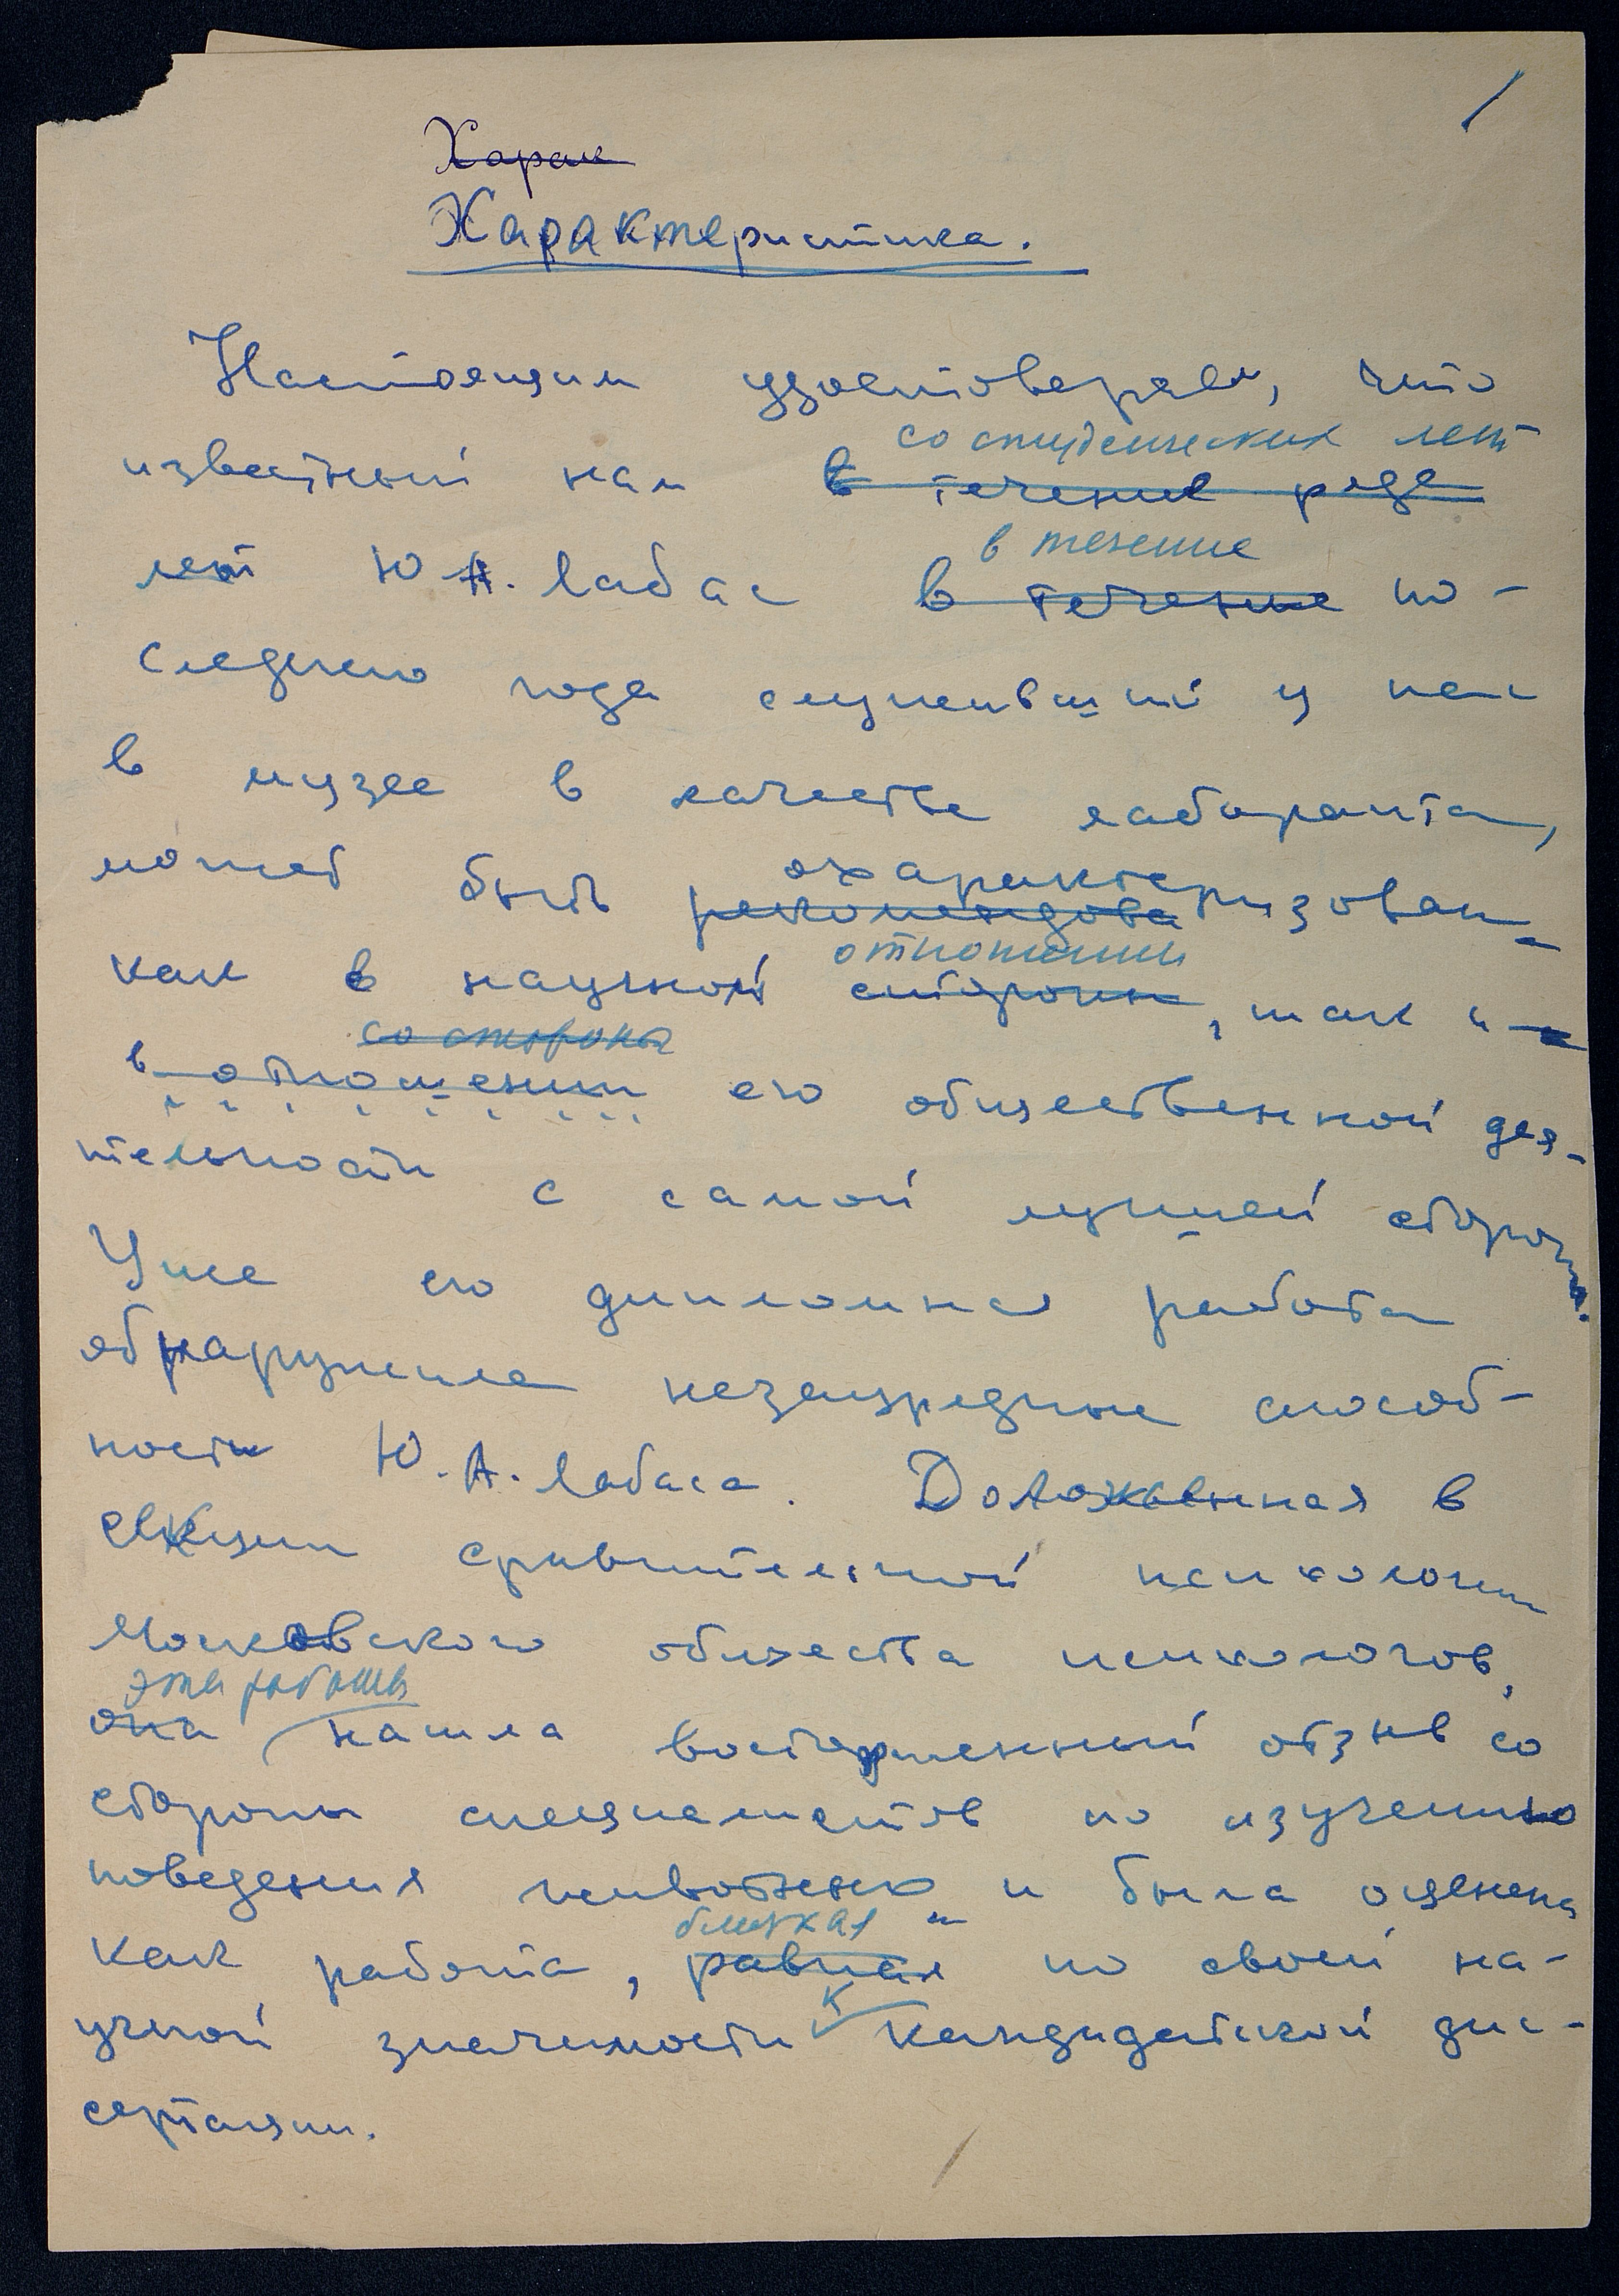 1
Харак
Характеристика.
Настоящим удостоверяем, что
со студенческих лет
известный нам в течение ряда
в течение
лет Ю.А. Лабас в течение по-
следнего года служивший у нас
в музее в качестве лаборанта,
охарактеризован
может быть рекомендова
отношении
как в научной стороны, так и
со стороны
в отношении его общественной дея-
тельности с самой лучшей стороны.
Уже его дипломная работа
обнаружила незаурядные способ-
ности Ю.А. Лабаса. Доложенная в
секции сравнительной психологии
Московского общества психологов,
эта работа
она нашла восторженный отзыв со
стороны специалистов по изучению
поведения животных и была оценена
близкая
как работа, равная по своей на-
к
учной значимости кандидатской дис-
сертации.